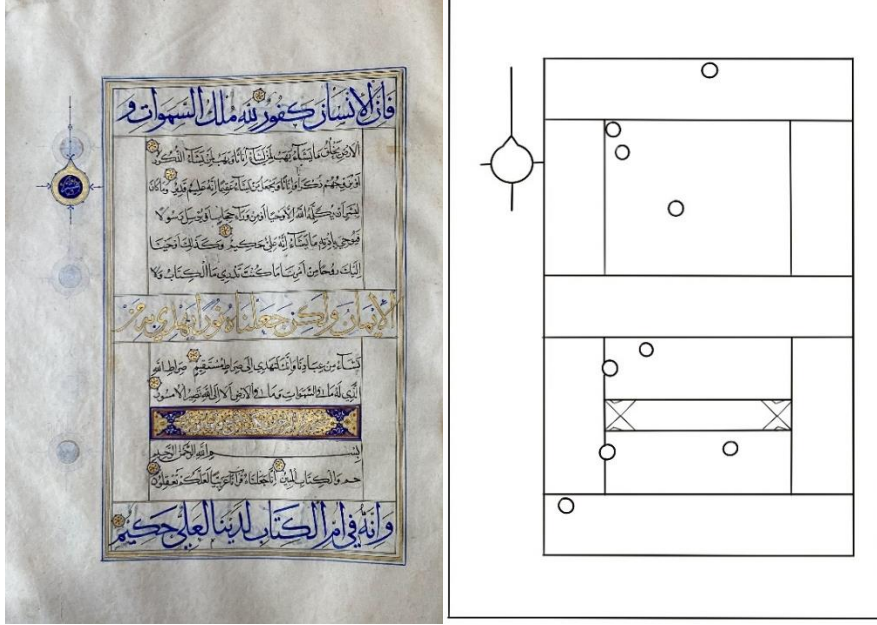 فإن الإنسان كفور لله ملك السموات و
الأرض يخلق ما يشاء يهب لمن يشاء إناثا ويهب لمن يشاء الذكور
أو يزوجهم ذكرانا وإناثا ويجعل من يشاء عقيما إنه عليم قدير وما كان
لبشر أن يكلمه الله إلا وحيا أو من وراء حجاب أو يرسل رسولا
فيوحي بإذنه ما يشاء إنه علي حكيم وكذلك أوحينا
إليك روحا من أمرنا ما كنت تدري ما الكتاب ولا
الإيمان ولكن جعلناه نورا نهدي به من
نشاء من عبادنا وإنك لتهدي إلى صراط مستقيم صراط الله
الذي له ما في السموات وما في الأرض ألا إلى الله تصير الأمور
بسم الله الرحمن الرحيم
حم والكتاب المبين إنا جعلناه قرآنا عربيا لعلكم تعقلون
وإنه في أم الكتاب لدينا لعلي حكيم